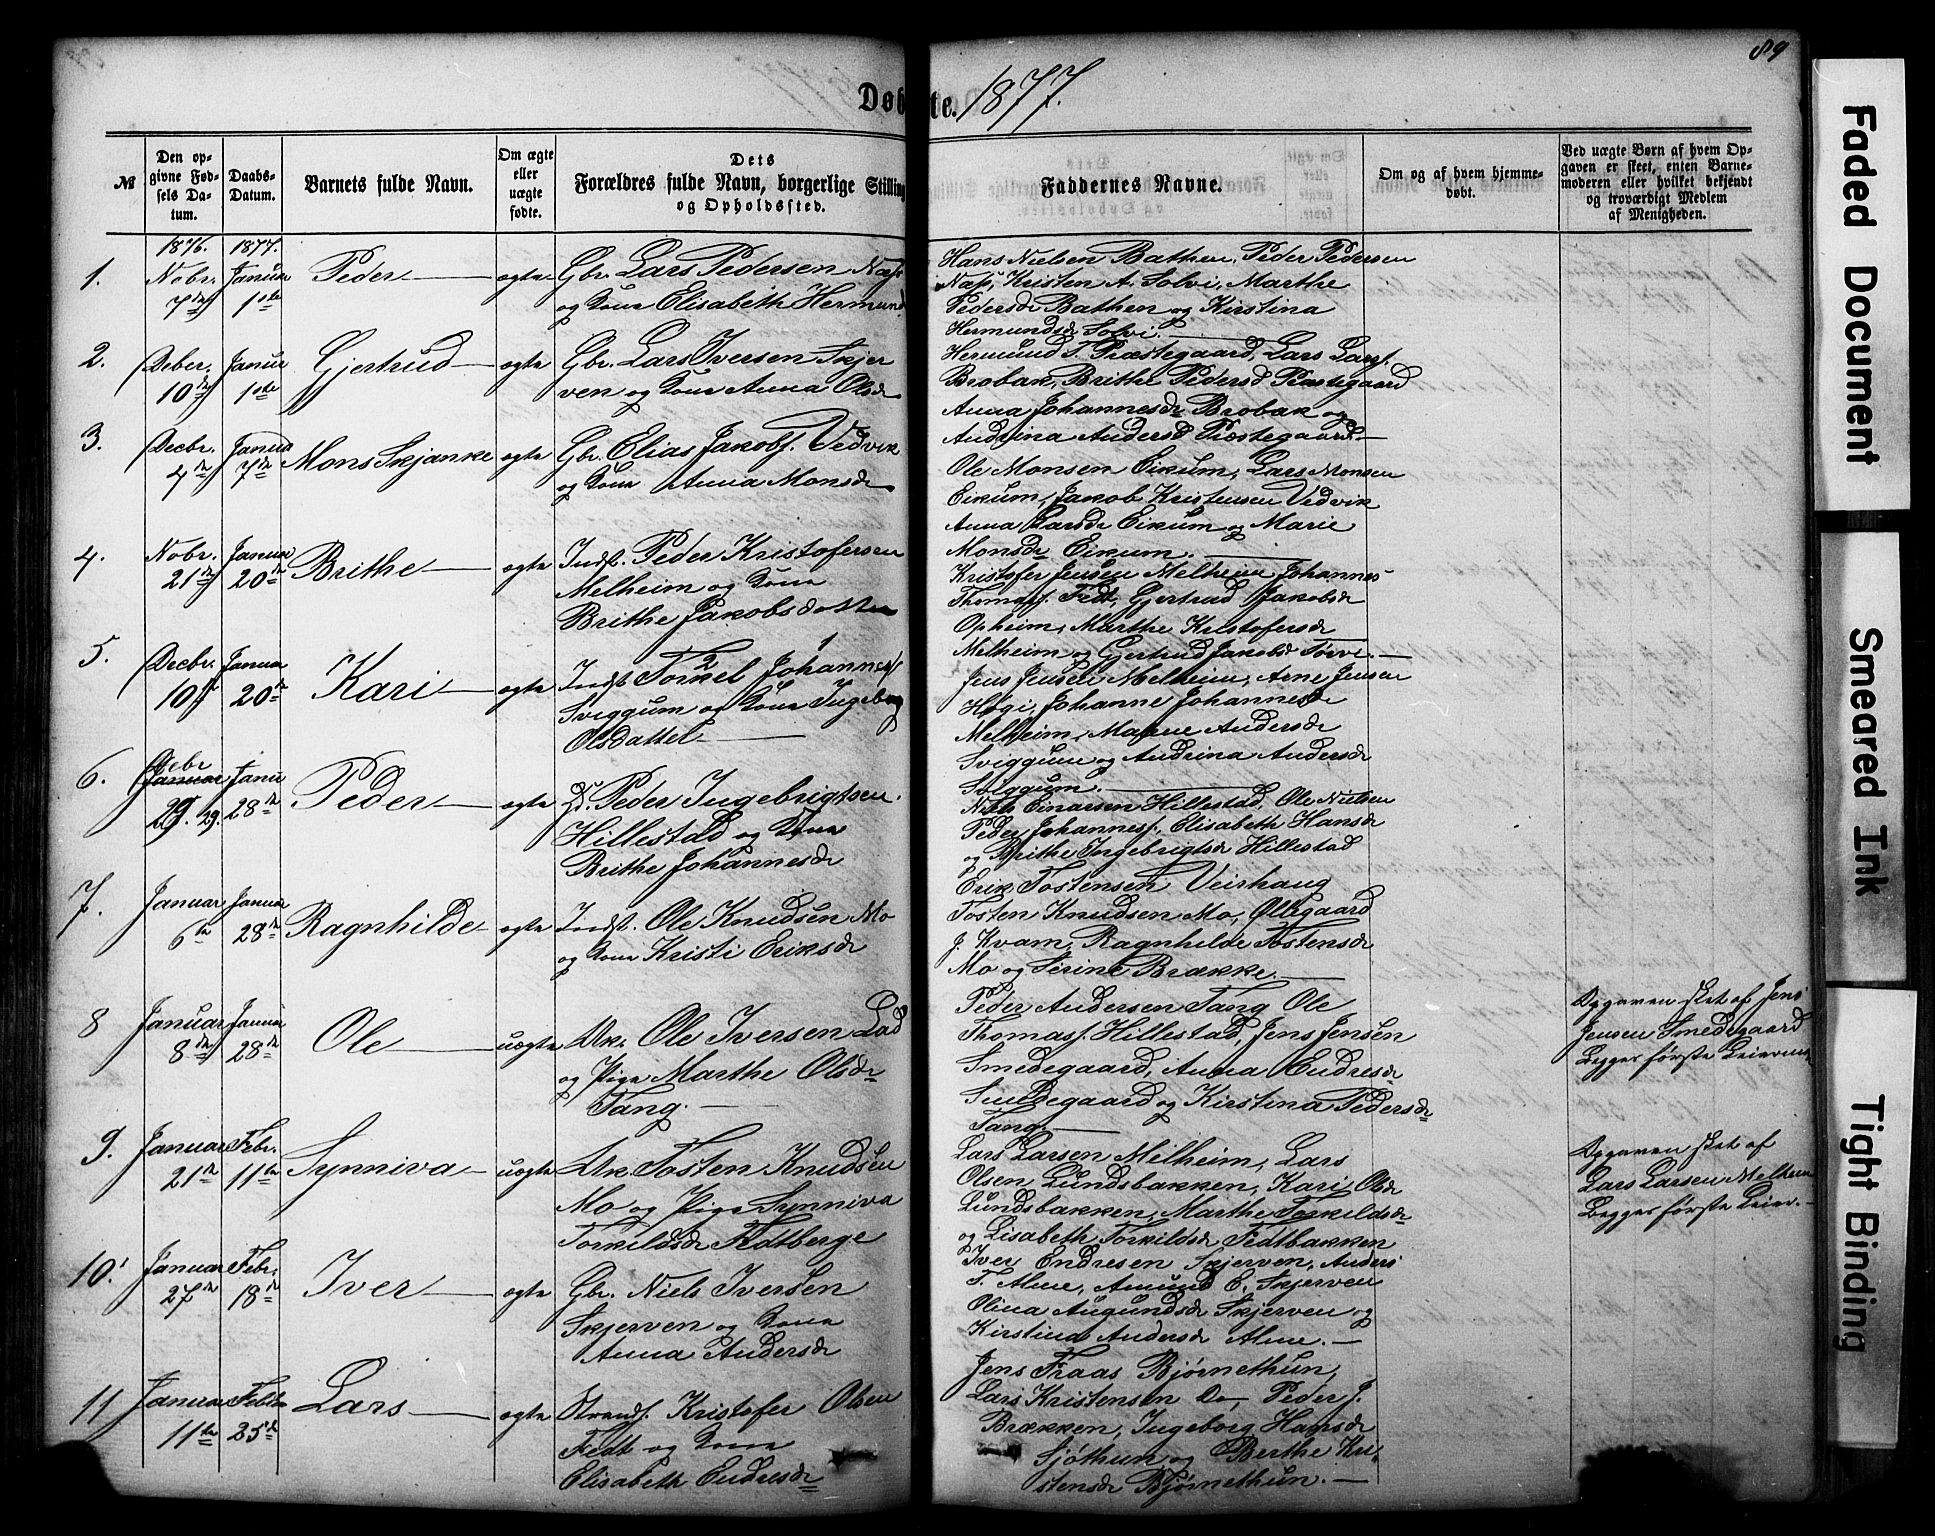 89
Døbte. 1877.
№
Den opgivne Fødsels Datum.
Daabs-Datum.
Barnets fulde Navn.
Om ægte eller uægte fødte.
Dets Forældres fulde Navn, borgerlige Stilling og Opholdssted.
Faddernes Navne.
Om og af hvem hjemmedøbt.
Ved uægte Børn af hvem Opgaven er skeet, enten Barnemoderen eller hvilket bekjendt og troværdigt Medlem af Menigheden.
1876. 1877.
1. Nobr. 7de Januar 1ste Peder ægte Gbr. Lars Pedersen Næss
og Kone Elisabeth Hermund
Hans Nielsen Bathen, Peder Pedersen
Næss, Kristen A. Solvi, Marthe
Pedersdr Bathen og Kirstina
Hermundsdr Solvi.
2. Deber. 10de Januar 1ste Gjertrud ægte Gbr. Lars Iversen Skjer
ven og Kone Anna Olsdr
Hermund T. Præstegaard, Lars Larss.
Brobak, Brithe Pedersd Præstegaard
Anna Johannesdr Brobak og
Andrina Andersd Præstegaard
3. Decbr. 4de Januar 7de Mons Skjanke ægte Gbr. Elias Jakobs. Vedvik
og Kone Anna Monsdr
Ole Monsen Eikum, Lars Monsen
Eikum, Jakob Kristensen Vedvik
Anna Larsdr Eikum og Marie
Monsdr Eikum.
4. Nobr. 21de Januar 20de Brithe ægte Indst. Peder Kristofersen
Melheim og Kone
Brithe Jakobsdatter
Kristofer Jensen Melheim Johannes
Thomass. Fedt, Gjertrud Jakobsdr
Opheim, Marthe Kristofersdr
Melheim og Gjertrud Jakobsd Sørvi
5. Decbr. 10de Januar 20de Kari ægte Indst. Torkel Johanness
Sviggum og Kone Ingeborg
Olsdatter
Jens Jensen Melheim, Arne Jensen
Høgi, Johanne Johannesdr
Melheim, Marie Andersdr
Sviggum og Andrina Andersdr
Sviggum.
6. Debr 29. Janu 28de Peder ægte Gd. Peder Ingebrigtsen
Hillestad og Kone
Brithe Johannesdr
Niels Einarsen Hillestad, Ole Nielsen
Peder Johanness. Elisabeth Hansdr
og Brithe Ingebrigtsdr Hillestad
7. Januar 6te Januar 28de Ragnhilde ægte Indst. Ole Knudsen Mo
og Kone Kristi Eriksdr
Erik Tostensen Veirhaug
Tosten Knudsen Mo, Øllegaard
J. Kvam, Ragnhilde Tostensdr
Mo og Serine Brække.
8 Januar 8de Januar 28de Ole uægte Uk. Ole Iversen Lad
og Pige Marthe Olsdr
Tang.
Peder Andersen Tang Ole
Thomass. Hillestad, Jens Jensen
Smedegaard, Anna Endresdr
Smedegaard og Kirstina Pedersdr
Tang.
Opgaven sket af Jens
Jensen Smedegaard
Begges første Leierm
9. Januar 21de Febr. 11te Synniva uægte Uk. Tosten Knudsen
Mo og Pige Synniva
Torkildsdr Fedtberge
Lars Larsen Melheim, Lars
Olsen Lundsbakken, Kari Olsdr
Lundsbakken, Marthe Torkildsdr
og Lisabeth Torkildsdr Fedtbakken
Opgaven sket af
Lars Larsen Melheim
Begges første Leier.
10. Januar 27de Febr. 18de Iver ægte Gbr. Niels Iversen
Skjerven og Kone
Anna Andersdr
Iver Endresen Skjerven, Anders
T. Alme, Amund E. Skjerven
Olina Augundsdr Skjerven og
Kirstina Andersdr Alme.
11 Januar 11te Febr 25de Lars ægte Strands. Kristofer Olsen
Fedt og Kone
Elisabeth Endresdr
Jens Fraas Bjørnethun,
Lars Kristensen Do, Peder J.
Brækken, Ingeborg Hansdr
Sjøthun og Berthe Kri-
stensdr Bjørnethun.
Faded Document
Smeared Ink
Tight Binding